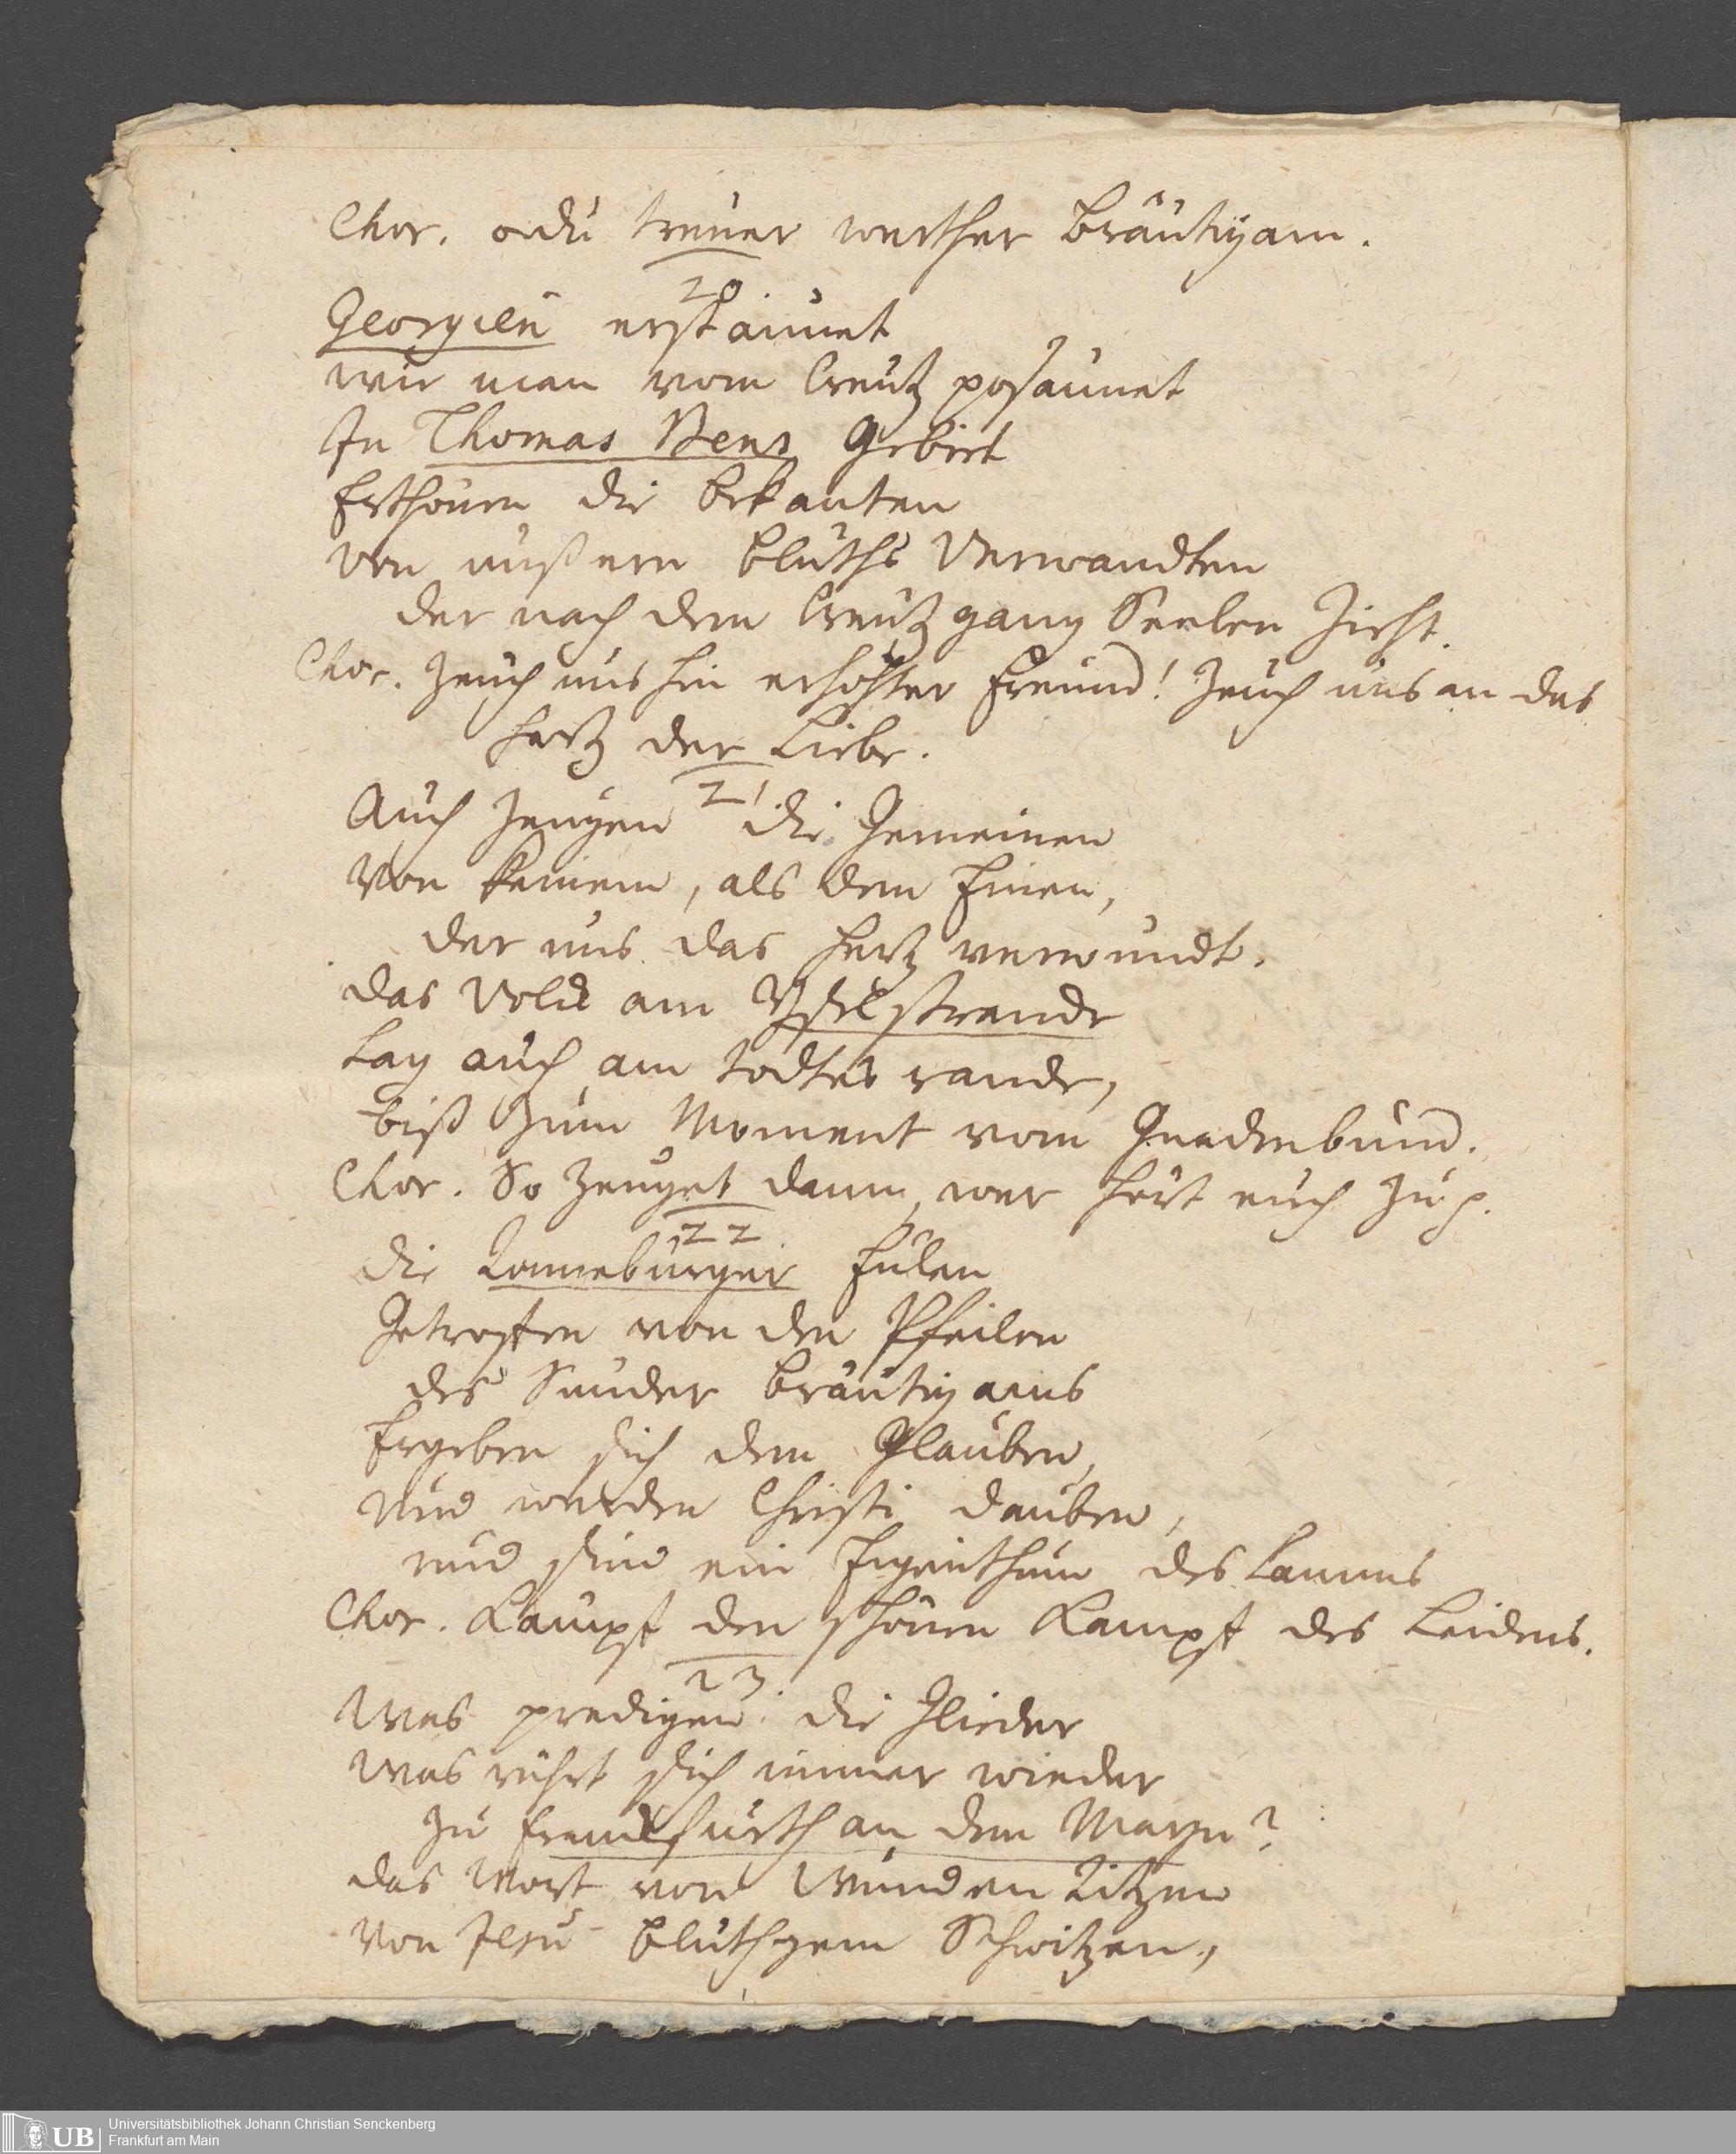 Chor. o du treuer werther Bräutigam.
20.
Georgien erstaunet
wie man vom Creutz posaunet
In Thomas Gebiet
Erthönen die bekanten
von unßern bluths Verwandten
der nach dem Creutz gang Seelen Zieht.
Chor. Zeuch uns hin erhöhter Freund! Zeuch uns an das
Hertz der Liebe.
21
Auch Zeugen die Gemeinen
Von keinem, als dem Einen,
der uns das Hertz verwundt.
das Volck am Ysselstrande
Lag auch am todtes rande,
biß Zum Moment vom Gnadenbund.
Chor. So Zeuget dann, wer hört euch zu p.
22.
die Ronneburger Eülen
Getroffen von den Pfeilen
des Sünder Bräutigams
Ergeben sich dem Glauben,
Und werden Christi Dauben,
und sind ein Eigenthum des Lamms
Chor. Kämpf den schönen Kampf des Leidens.
23.
Was predigen die Glieder
Was rührt sich immer wieder
Zu Franckfurth an dem Mayn?
das Wort von Wunden Ritzen
Von Jesu bluthgem Schwitzen,
UB
Universitätsbibliothek Johann Christian Senckenberg
Frankfurt am Main